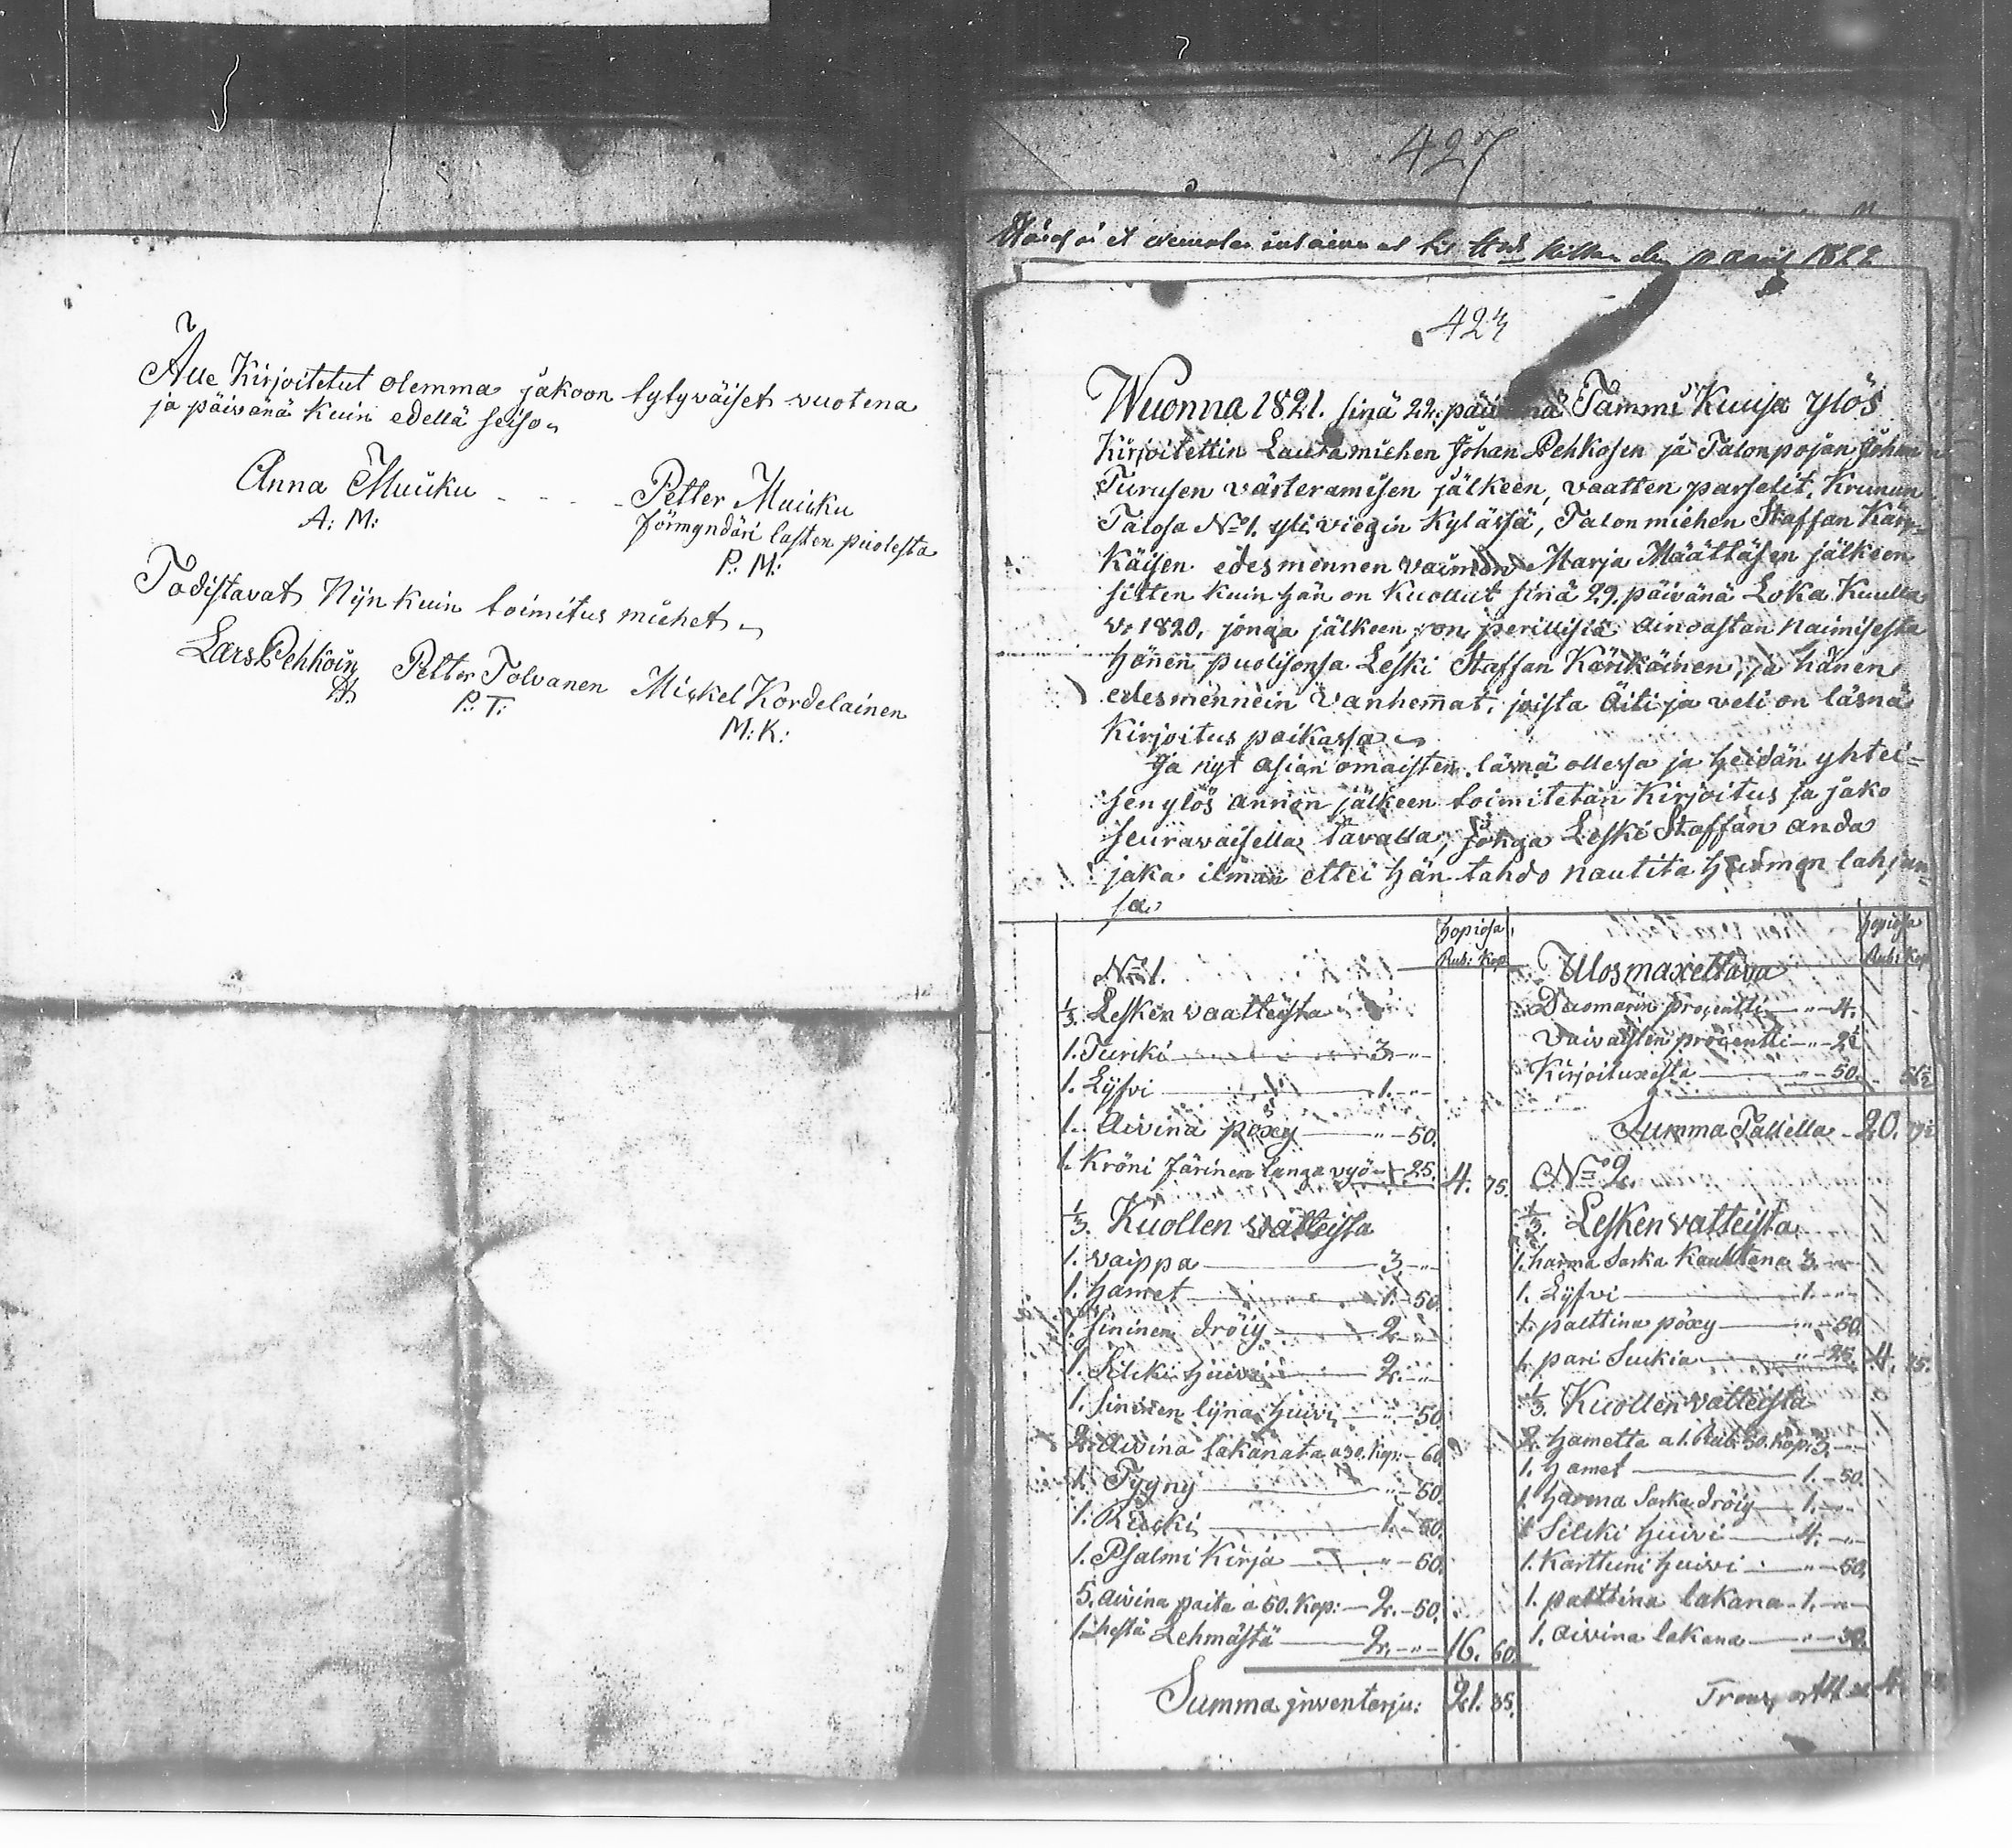 Alle Kirjoitetut olemma jakoon tytyväiset vuotena
ja päivänä kuin edellä seiso
Anna Muiku - - - Petter Muiku
A: M: förmyndäri lasten puolesta
P: M:
Todistavat Nijn kuin toimitus miehet
Lars Pehkoin Petter Tolvanen Mickel Kordelainen
P: T: M: K:
427
den 10 april 1822
423
Wuonna 1821. sinä 22. päivänä Tammi Kuusa ylös
Kirjoitettin Lautamiehen Johan Pehkosen ja Talonpojan Johan
Turusen värteramisen jälkeen, vaatten parselit, Krunun
Talosa No 1. yli viexin Kylässä, Talon miehen Staffan Kärk=
käisen edesmennen vaimon Marja Määttäsen jälkeen
sitten kuin hän on Kuollut sinä 29. päivänä Loka Kuulla
v. 1820, jonga jälkeen on perillisiä ainoastan naimisesta
hänen puolisonsa Leski Staffan Kärkäinen, ja hänen
edesmennein vanhemat, joista äiti ja veli on läsnä
Kirjoitus paikassa
Ja nyt asian omaisten läsnä ollessa ja heidän yhtei=
sen ylös annon jälkeen toimitetan Kirjoitus ja jako
seuravaisella tavalla, Leski Staffan anda
jaka ilman ettei hän tahdo nautita huomen lahjan=
sa
hopiosa
Rub: Kop
No 1.
1/3. Lesken vaatteista
1. Turiki 3. "
1. Lijvi 1. "
1. Aivina pöxy " 50.
1. Kröni Järinen langa vyö " 25. 4. 75.
1/3. Kuollen vatteista
1. vaippa 3. "
1. hamet 1. 50.
1. sininen dröiy 2. "
1. Silcki huivi 2. "
1. sininen lijna huivi " 50
2. aivina lakanata a 30. kop: 60.
1. Tygny " 50.
1. Rucki 1. 50.
1. Psalmi Kirja " 50.
5. aivina paita a 50. Kop: 2. 50.
1. hestä Lehmästä 2. " 16. 60.
Summa jnventarju: 21. 35.
hopiosa
Rub: Kop
Ulosmaxettava
Duomarin procentti " 4.
Vaivaisten procentti " 2½
Kirjoituxesta " 50. 56½
Summa Tällella 20.
No 2.
1/3. Lesken vatteista
1. harma Sarka Kauhtana 3. "
1. Lijvi 1. "
1. palttina pöxy " 50.
1. pari Suckia " 25. 4. 75.
1/3. Kuollen vatteista
2. hametta a 1. Rub: 50. Kop: 3. "
1. hamet 1. 50.
1. harma Sarka dröiy 1. "
1. Silcki huivi 4. "
1. Karttuni huivi " 50.
1. palttina lakana 1. "
1. aivina lakana " 30.